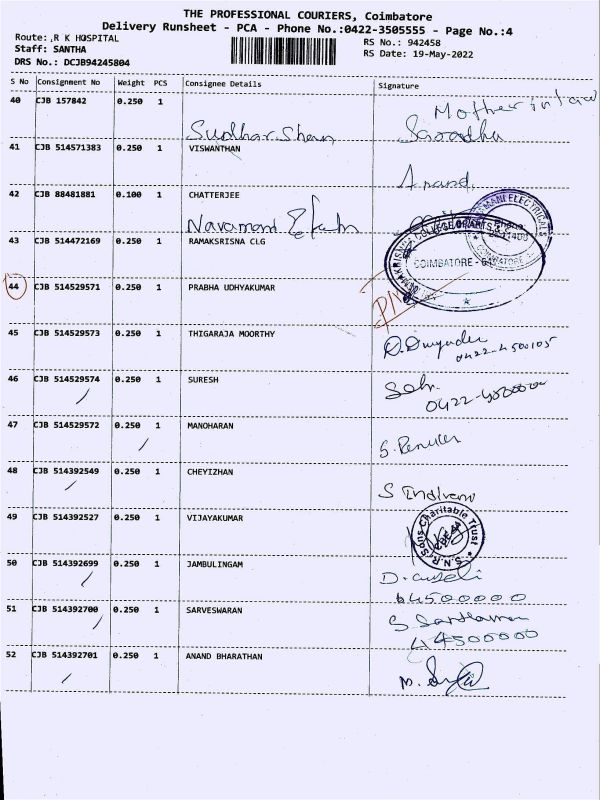 THE PROFESSIONAL COURIERS, Coimbatore
Delivery Runsheet - PCA - Phone No.:0422-3505555 - Page No.:4
Route:,R K HOSPITAL
RS No.: 942458
Staff: SANTHA
RS Date: 19-May-2022
DRS No.: DCJB94245804
S No Consignment No Weight PCS Consignee Details Signature
40 CJB 157842 0.250 1 Mother in law
Sudharshan Saradha
41 CJB 514571383 0.250 1 VISWANTHAN
Anand
42 CJB 88481881 0.100 1 CHATTERJEE
Navamani
43 CJB 514472169 0.250 1 RAMAKSRISNA CLG
COIMBATORE
44 CJB 514529571 0.250 1 PRABHA UDHYAKUMAR
45 CJB 514529573 0.250 1 THIGARAJA MOORTHY
0422-4500105
46 CJB 514529574 0.250 1 SURESH
47 CJB 514529572 0.250 1 MANOHARAN
48 CJB 514392549 0.250 1 CHEYIZHAN
49 CJB 514392527 0.250 1 VIJAYAKUMAR
S.N.R Sons Charitable Trust
50 CJB 514392699 0.250 1 JAMBULINGAM
64500000
51 CJB 514392700 0.250 1 SARVESWARAN
44500000
52 CJB 514392701 0.250 1 ANAND BHARATHAN